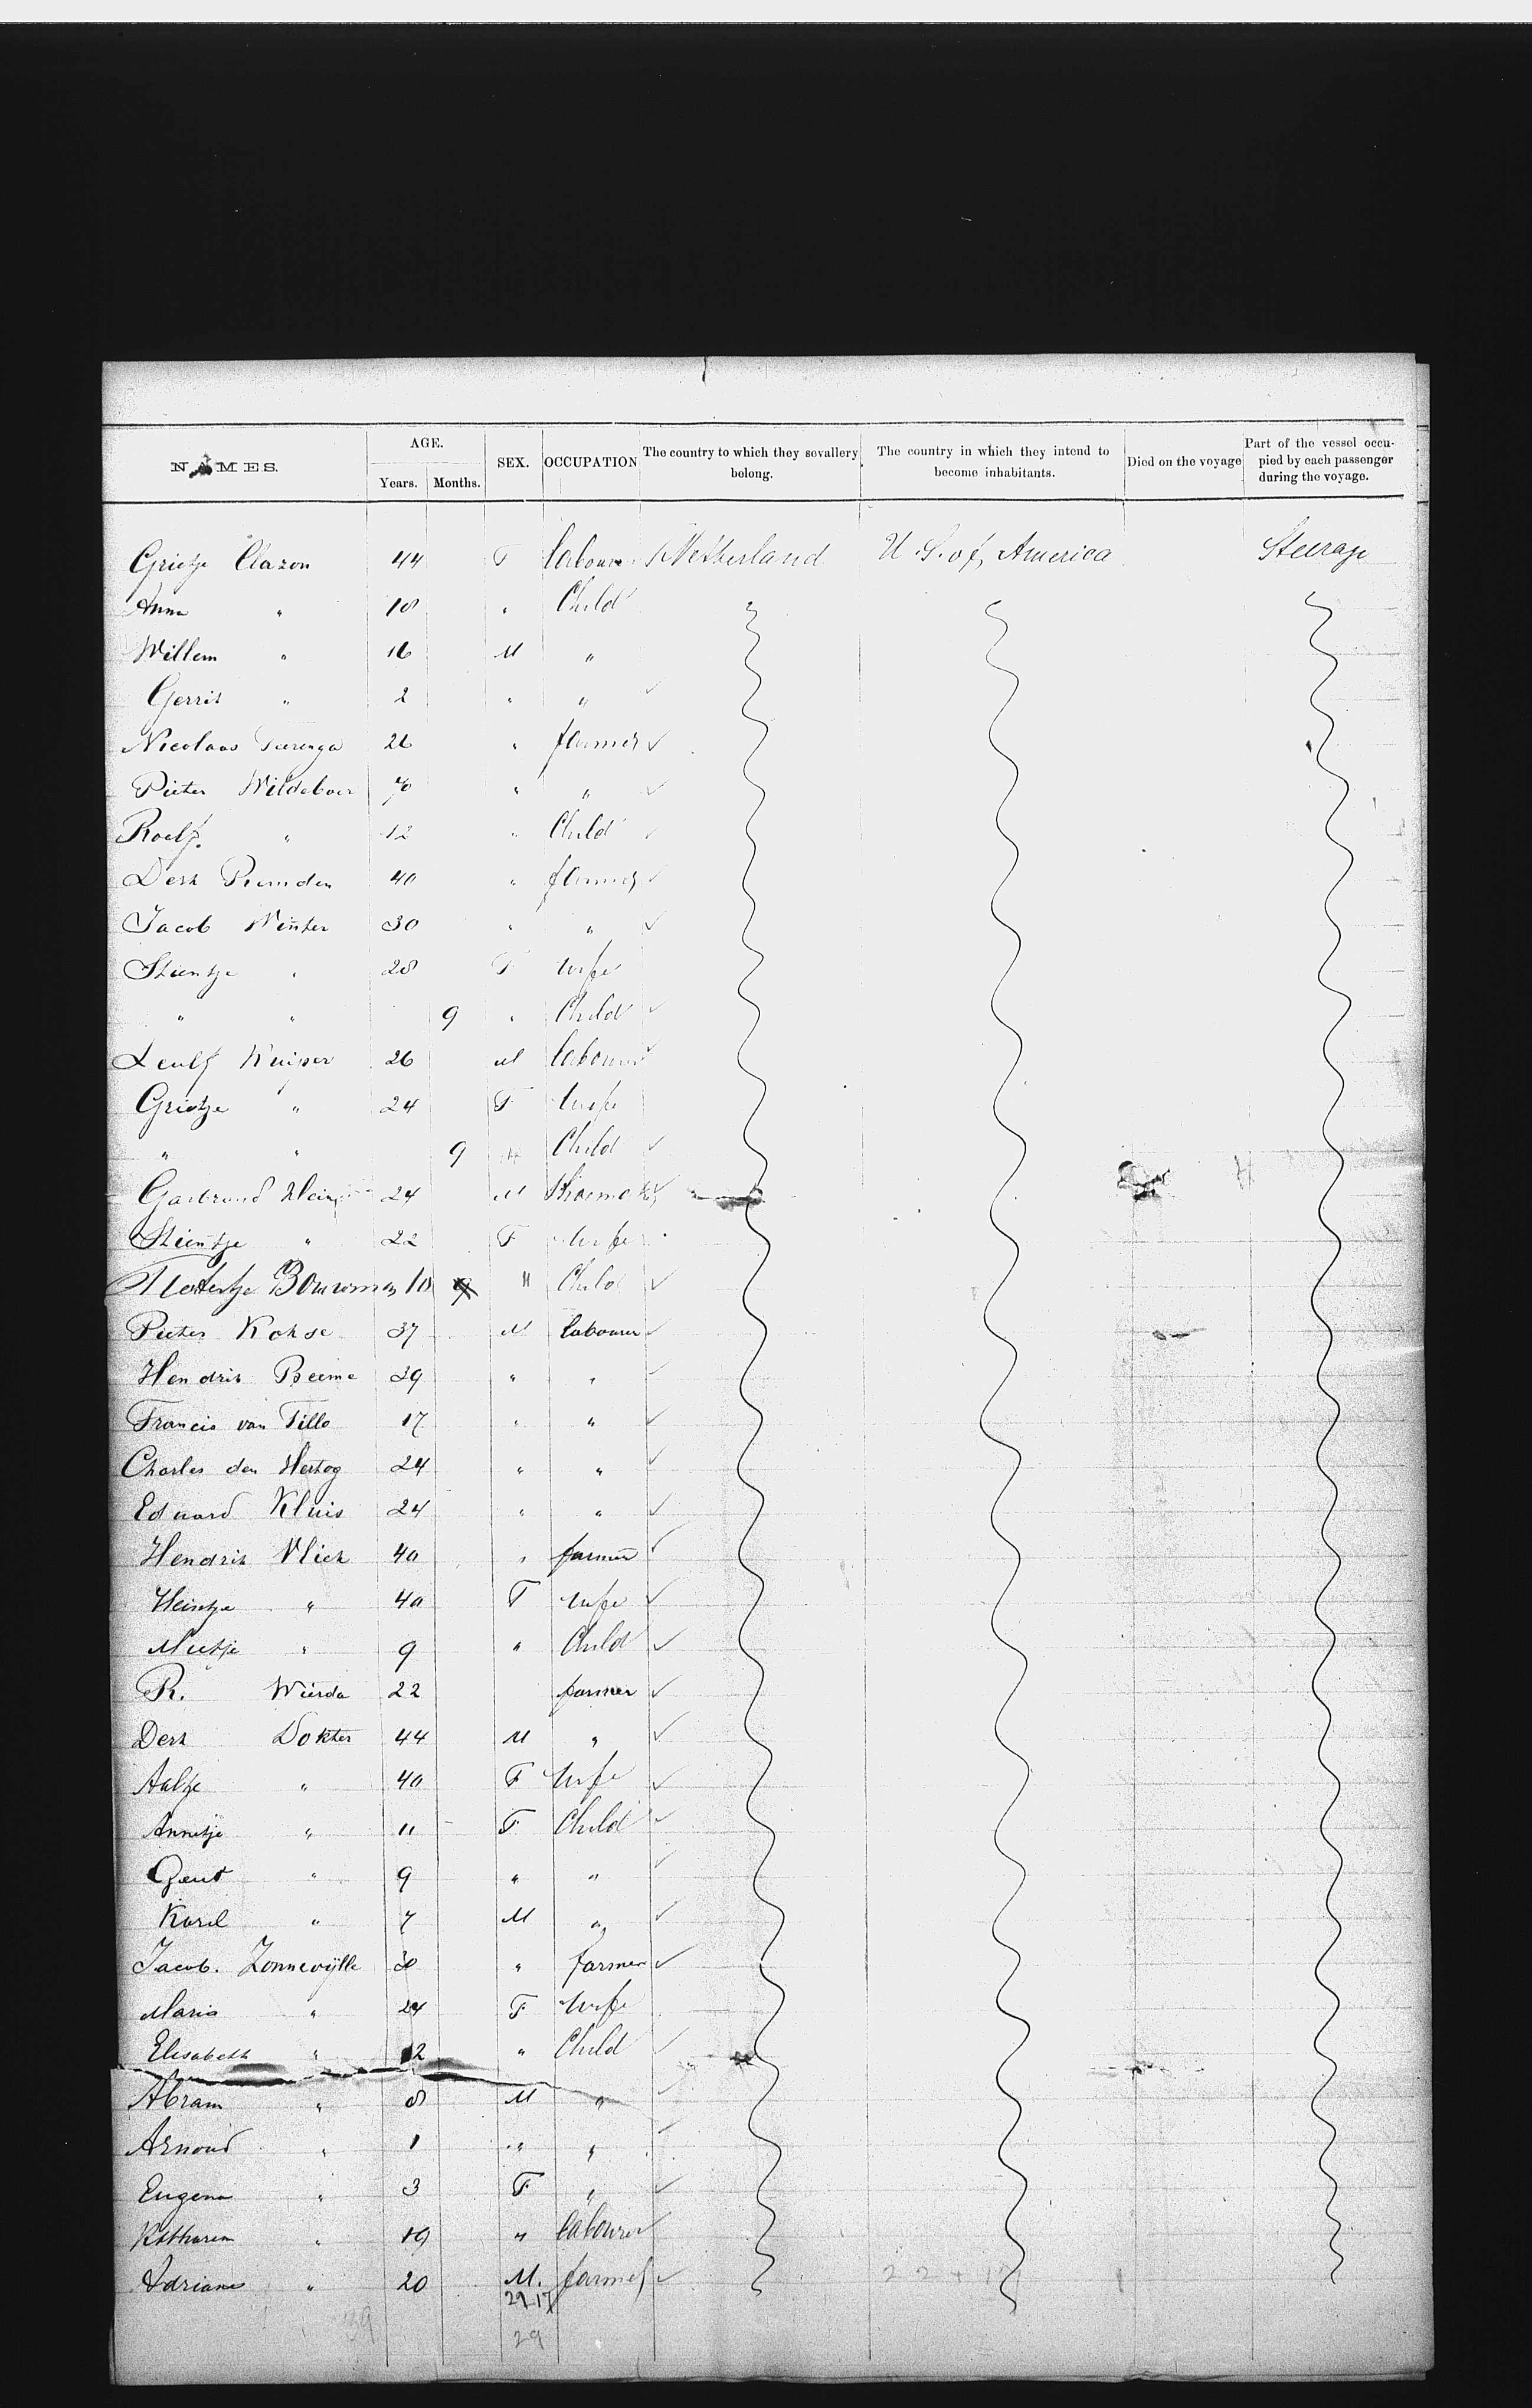 NAMES. AGE. SEX. OCCUPATION The country to which they sevallery belong. The country in which they intend to become inhabitants. Died on the voyage Part of the vessel occupied by each passenger during the voyage.
Years. Months.
Grietje Clazon 44 F labourer Netherland U.S. of America Steerage
Anna " 18 " Child
Willem " 16 M "
Gerrit " 2 " "
Nicolaas 26 " farmer
Pieter Wildeboer 70 " "
Roelf. " 12 " Child
Derk 40 " farmer
Jacob Winter 30 " "
Stientje " 28 F wife
" " 9 " Child
Kuiper 26 M labourer
Grietje " 24 F wife
" " 9 Child
24 M Shoemaker
Stientje " 22 F wife
Bouwman 10 " Child
Pieter Kokse 37 M labourer
Hendrik Beeme 39 " "
Francis van Tillo 17 " "
Charles den Hertog 24 " "
Eduard Kluis 24 " "
Hendrik Vliek 40 " farmer
Heintje " 40 F wife
Mietje " 9 " Child
R. Wierda 22 farmer
Derk Dokter 44 M "
Aaltje " 40 F wife
Annetje " 11 F Child
" 9 " "
Karel " 7 M "
Jacob. Zonnevylle 30 " farmer
Maria " 24 F wife
Elisabeth " 12 " Child
Abram " 8 M "
Arnoud " 1 " "
Eugena " 3 F "
Katharen " 19 " labourer
Adriane " 20 M. farmer
29 17
39 29